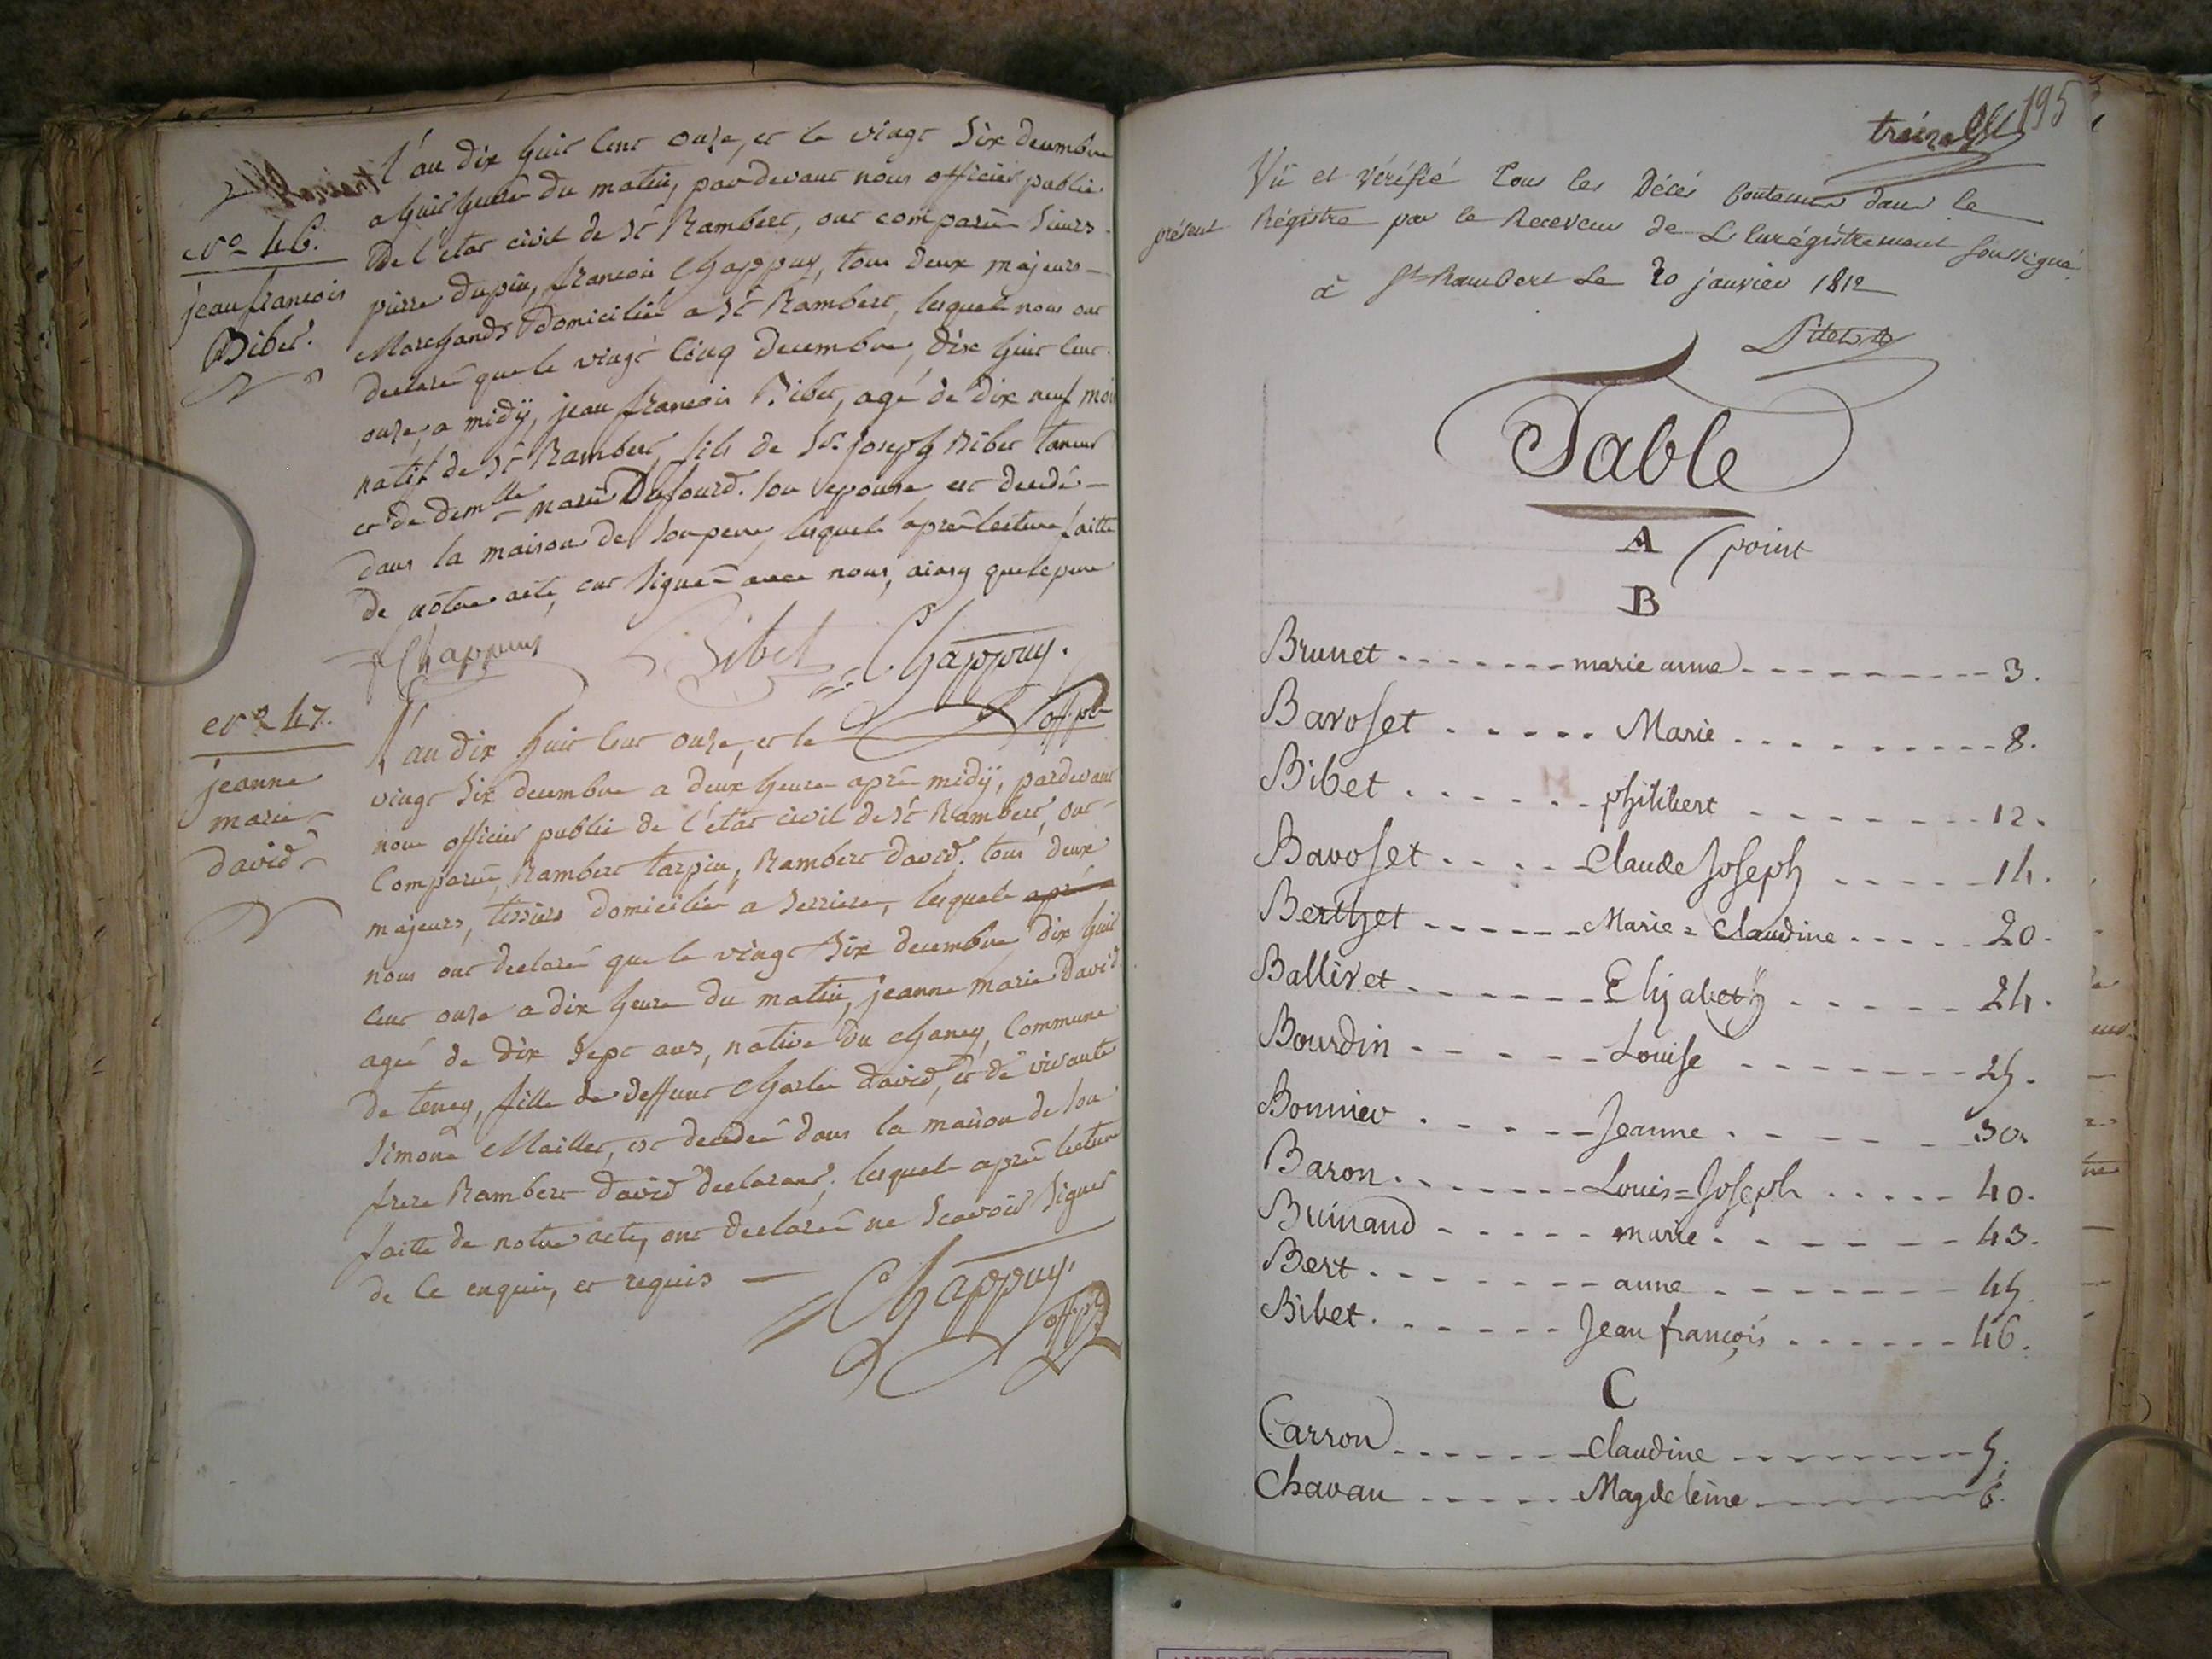 N.o 46.
jean francois
Bibet.
L'an dix huit cent onze, et le vingt Six decembre
a huit heure du matin, pardevant nous officier public
De l'etat civil de St Rambert, ont comparu Sieurs
pierre dupin, francois Chappuy, tous deux majeurs
Marchands domicilié a St Rambert, lesquels nous ont
declaré que le vingt Cinq Decembre, dix huit cent
onze, a midÿ, jean francois Bibet, agé de dix neuf moi
natif de St Rambert, fils de Sr. joseph Bibet taneur
et de demlle marie Dufourd. son epouse est decedé
dans la maison de son pere, lesquels apres lecture faitte
de notre acte, ont Signé avec nous, ainsy que le pere
Chappuy Bibet Chappuy.
off. pc
N.o 47.
jeanne
marie
david
L'an dix huit cent onze, et le
vingt Six decembre a deux heure apré midÿ, pardevant
nous officier public de l'etat civil de St Rambert, ont
Comparu, Rambert tarpin, Rambert David. tous deux
majeurs, tissiers domicilié a Serriere, lesquels apré
nous ont declaré que le vingt Six decembre dix huit
cent onze a dix heure du matin, jeanne marie David.
ageé de dix Sept ans, native du Chaney, Commune
De teney, fille de deffunt Charles david, et de vivante
Simone Maillet, est decedeé dans la maison de Son
frere Rambert David declarant, lesquels apres lecture
faitte de notre acte, ont declaré ne Scavoir Signer
de ce enquis, et requis
Chappuy.
off. pc
195
Vu et vérifié tous les Décés Contenus dans le
présent Régistre par le Receveur de L'Enrégistrement Soussigné
à St Rambert Le 20 janvier 1812
Table
A point
B
Brunet - - - - - - - marie anne - - - - - - - - - 3.
Bavoset . . . . . . Marie . . . . . . . . . 8.
Bibet . . . . . . . philibert - - - - - - - - 12.
Bavoset . . . . - Claude Joseph - - - - - 14.
Berthet - - - - - - Marie = Claudine . . . . . 20.
Ballivet . - - - - - - Elizabeth - - - - - - 24.
Bourdin - - - - - - Louise - - - - - - - - 25.
Bonnier . . - - - - Jeanne . - - - - - 30.
Baron . . . . . . . Louis = Joseph . . . . . 40.
Buinand - - - - - marie . - - - - - - 43.
Bert . . - - - - - - anne - - - - - - - - 45
Bibet . - - - - - - Jean françois . . . . . . 46.
C
Carron - - - - - - Claudine - - - - - - - - - 5.
Chavan - - - - - Magdeleine - - - - - - - - 6.